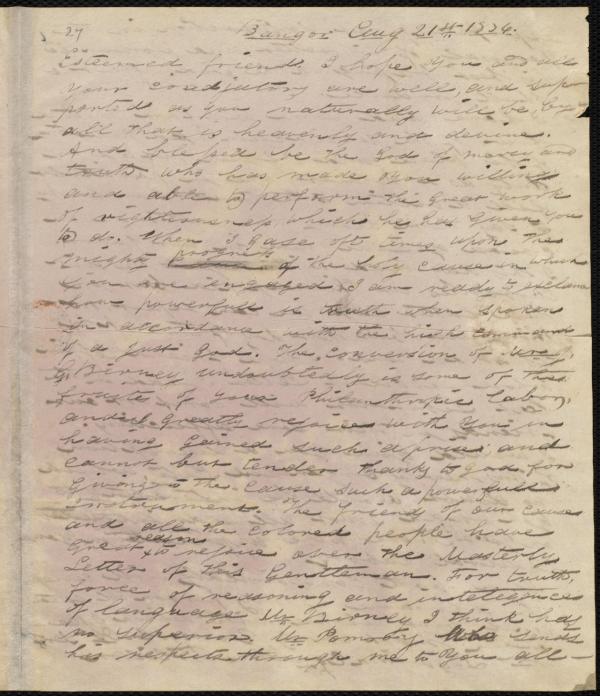 27 Bangor Aug 21st 1834.
Esteemed friend. I hope you and all
your coadjutory are well, and sup
ported as you naturally will be, by
all that is heavenly and devine.
And blessed be the God of mercy and
truth who has made you willing
and able to perform the great work
of righteousness, which he has given you
to do. When I gase oft times upon the
mighty progress of the holy cause in which
you are engaged I am ready to exclame
how powerfull is truth when spoken
in accordance with the high command
of a just God. The conversion of
G. Birney undoubtedly is some of the
fruits of your Philanthropic labor,
and I greatly rejoice with you in
having gained such a prise, and
cannot but tender thanks to god for
giving to the cause such a powerfull
instrument. The friend of our cause
and all the colored people have
great reason to rejoice over the Masterly
Letter of this Gentleman. For truth,
force of reasoning and intelegence
of language Mr Birney I think has
no superior. Mr Pomroy sends
his respects through me to you all—